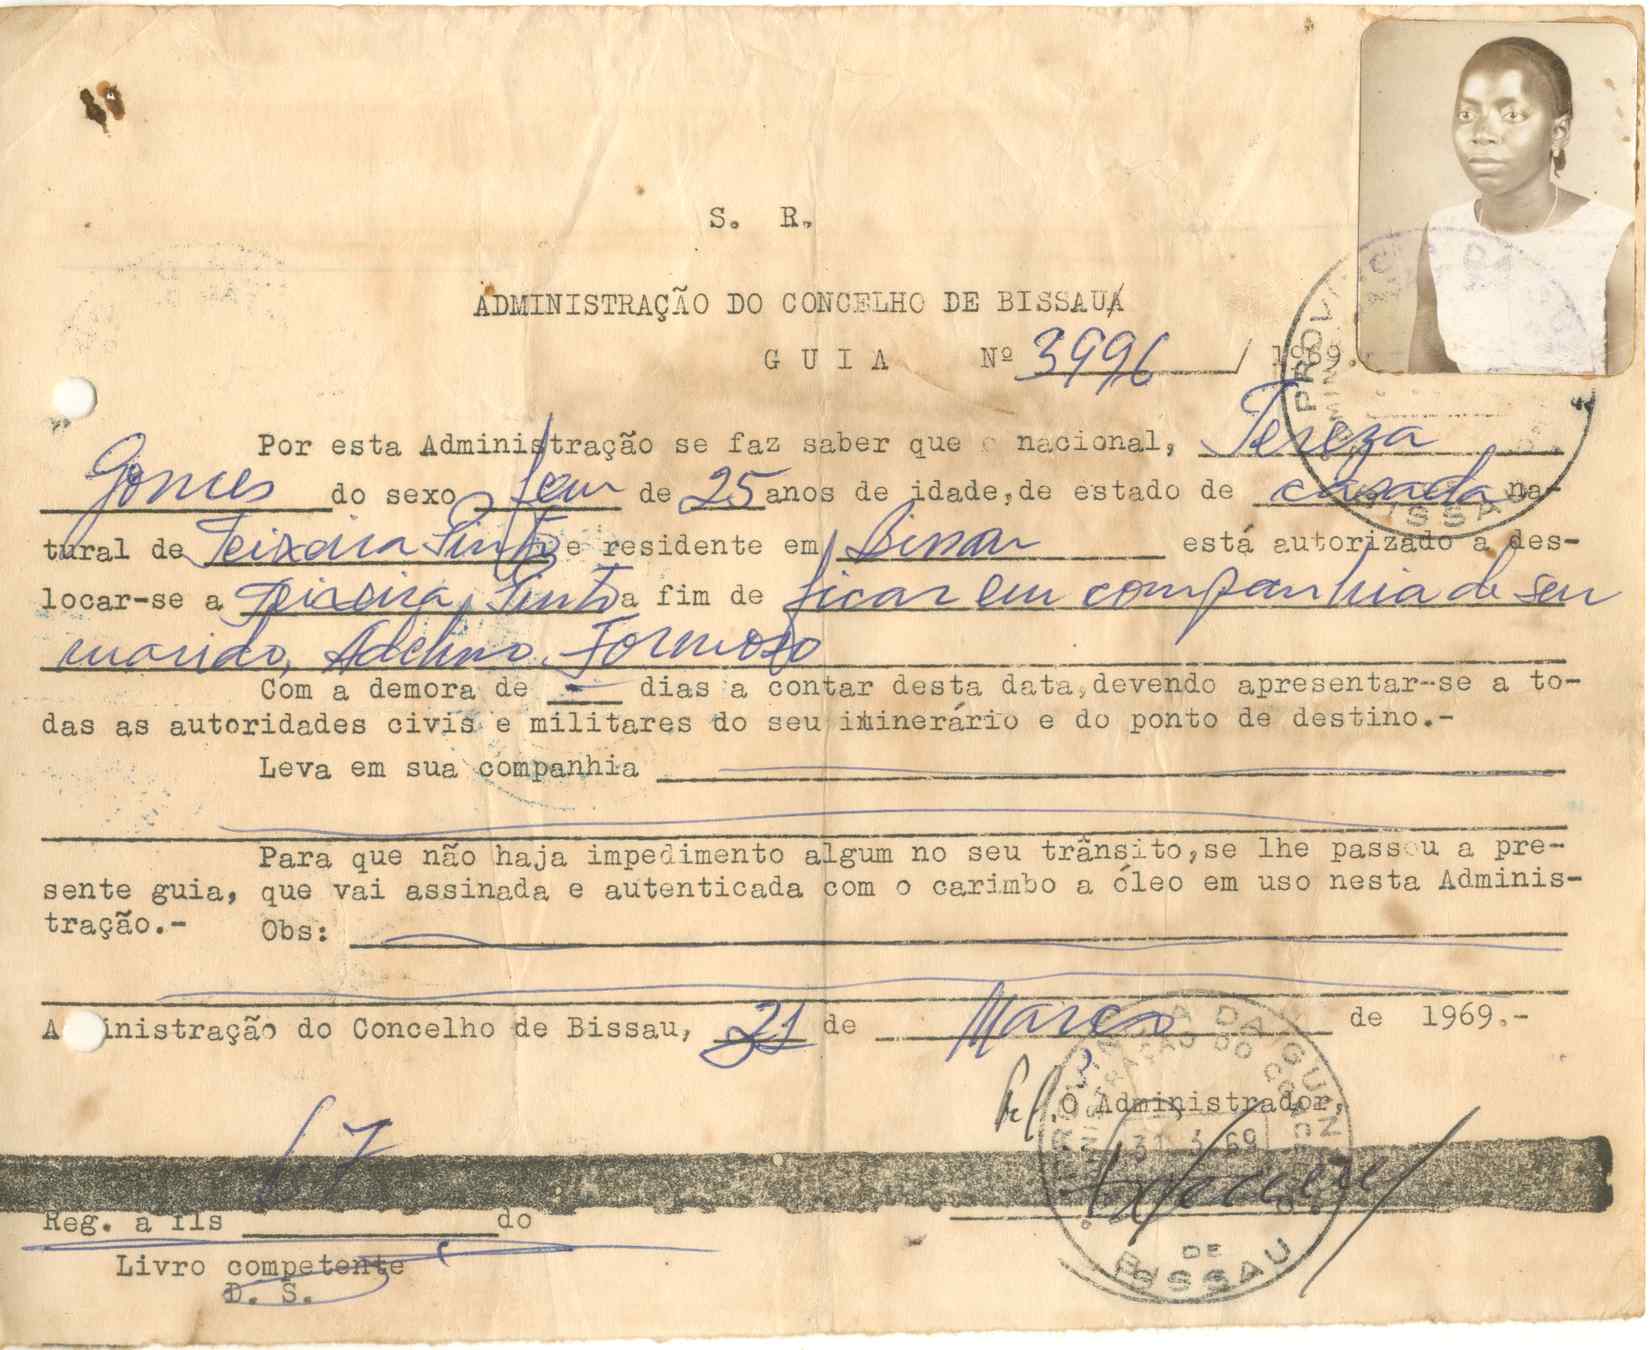 S. R.
ADMINISTRAÇÃO DO CONCELHO DE BISSAU
G U I A Nº 3996 / 1969.
Por esta Administração se faz saber que o nacional, Tereza
Gomes do sexo fem de 25 anos de idade, de estado de casada na-
tural de Teixeira Pinto e residente em Bissau está autorizado a des-
locar-se a Teixeira Pinto a fim de ficar em companhia de seu
marido, Adelino Formoso
Com a demora de - dias a contar desta data, devendo apresentar-se a to-
das as autoridades civis e militares do seu itinerário e do ponto de destino.-
Leva em sua companhia
Para que não haja impedimento algum no seu trânsito, se lhe passou a pre-
sente guia, que vai assinada e autenticada com o carimbo a óleo em uso nesta Adminis-
tração.- Obs:
A inistração do Concelho de Bissau, 31 de Março de 1969.-
O Administrador,
PROVÍNCIA DA GUINÉ
ADMINISTRAÇÃO DO CONCELHO
31 3 69
DE
BISSAU
Reg. a fls 67 do
Livro competente
D. S.